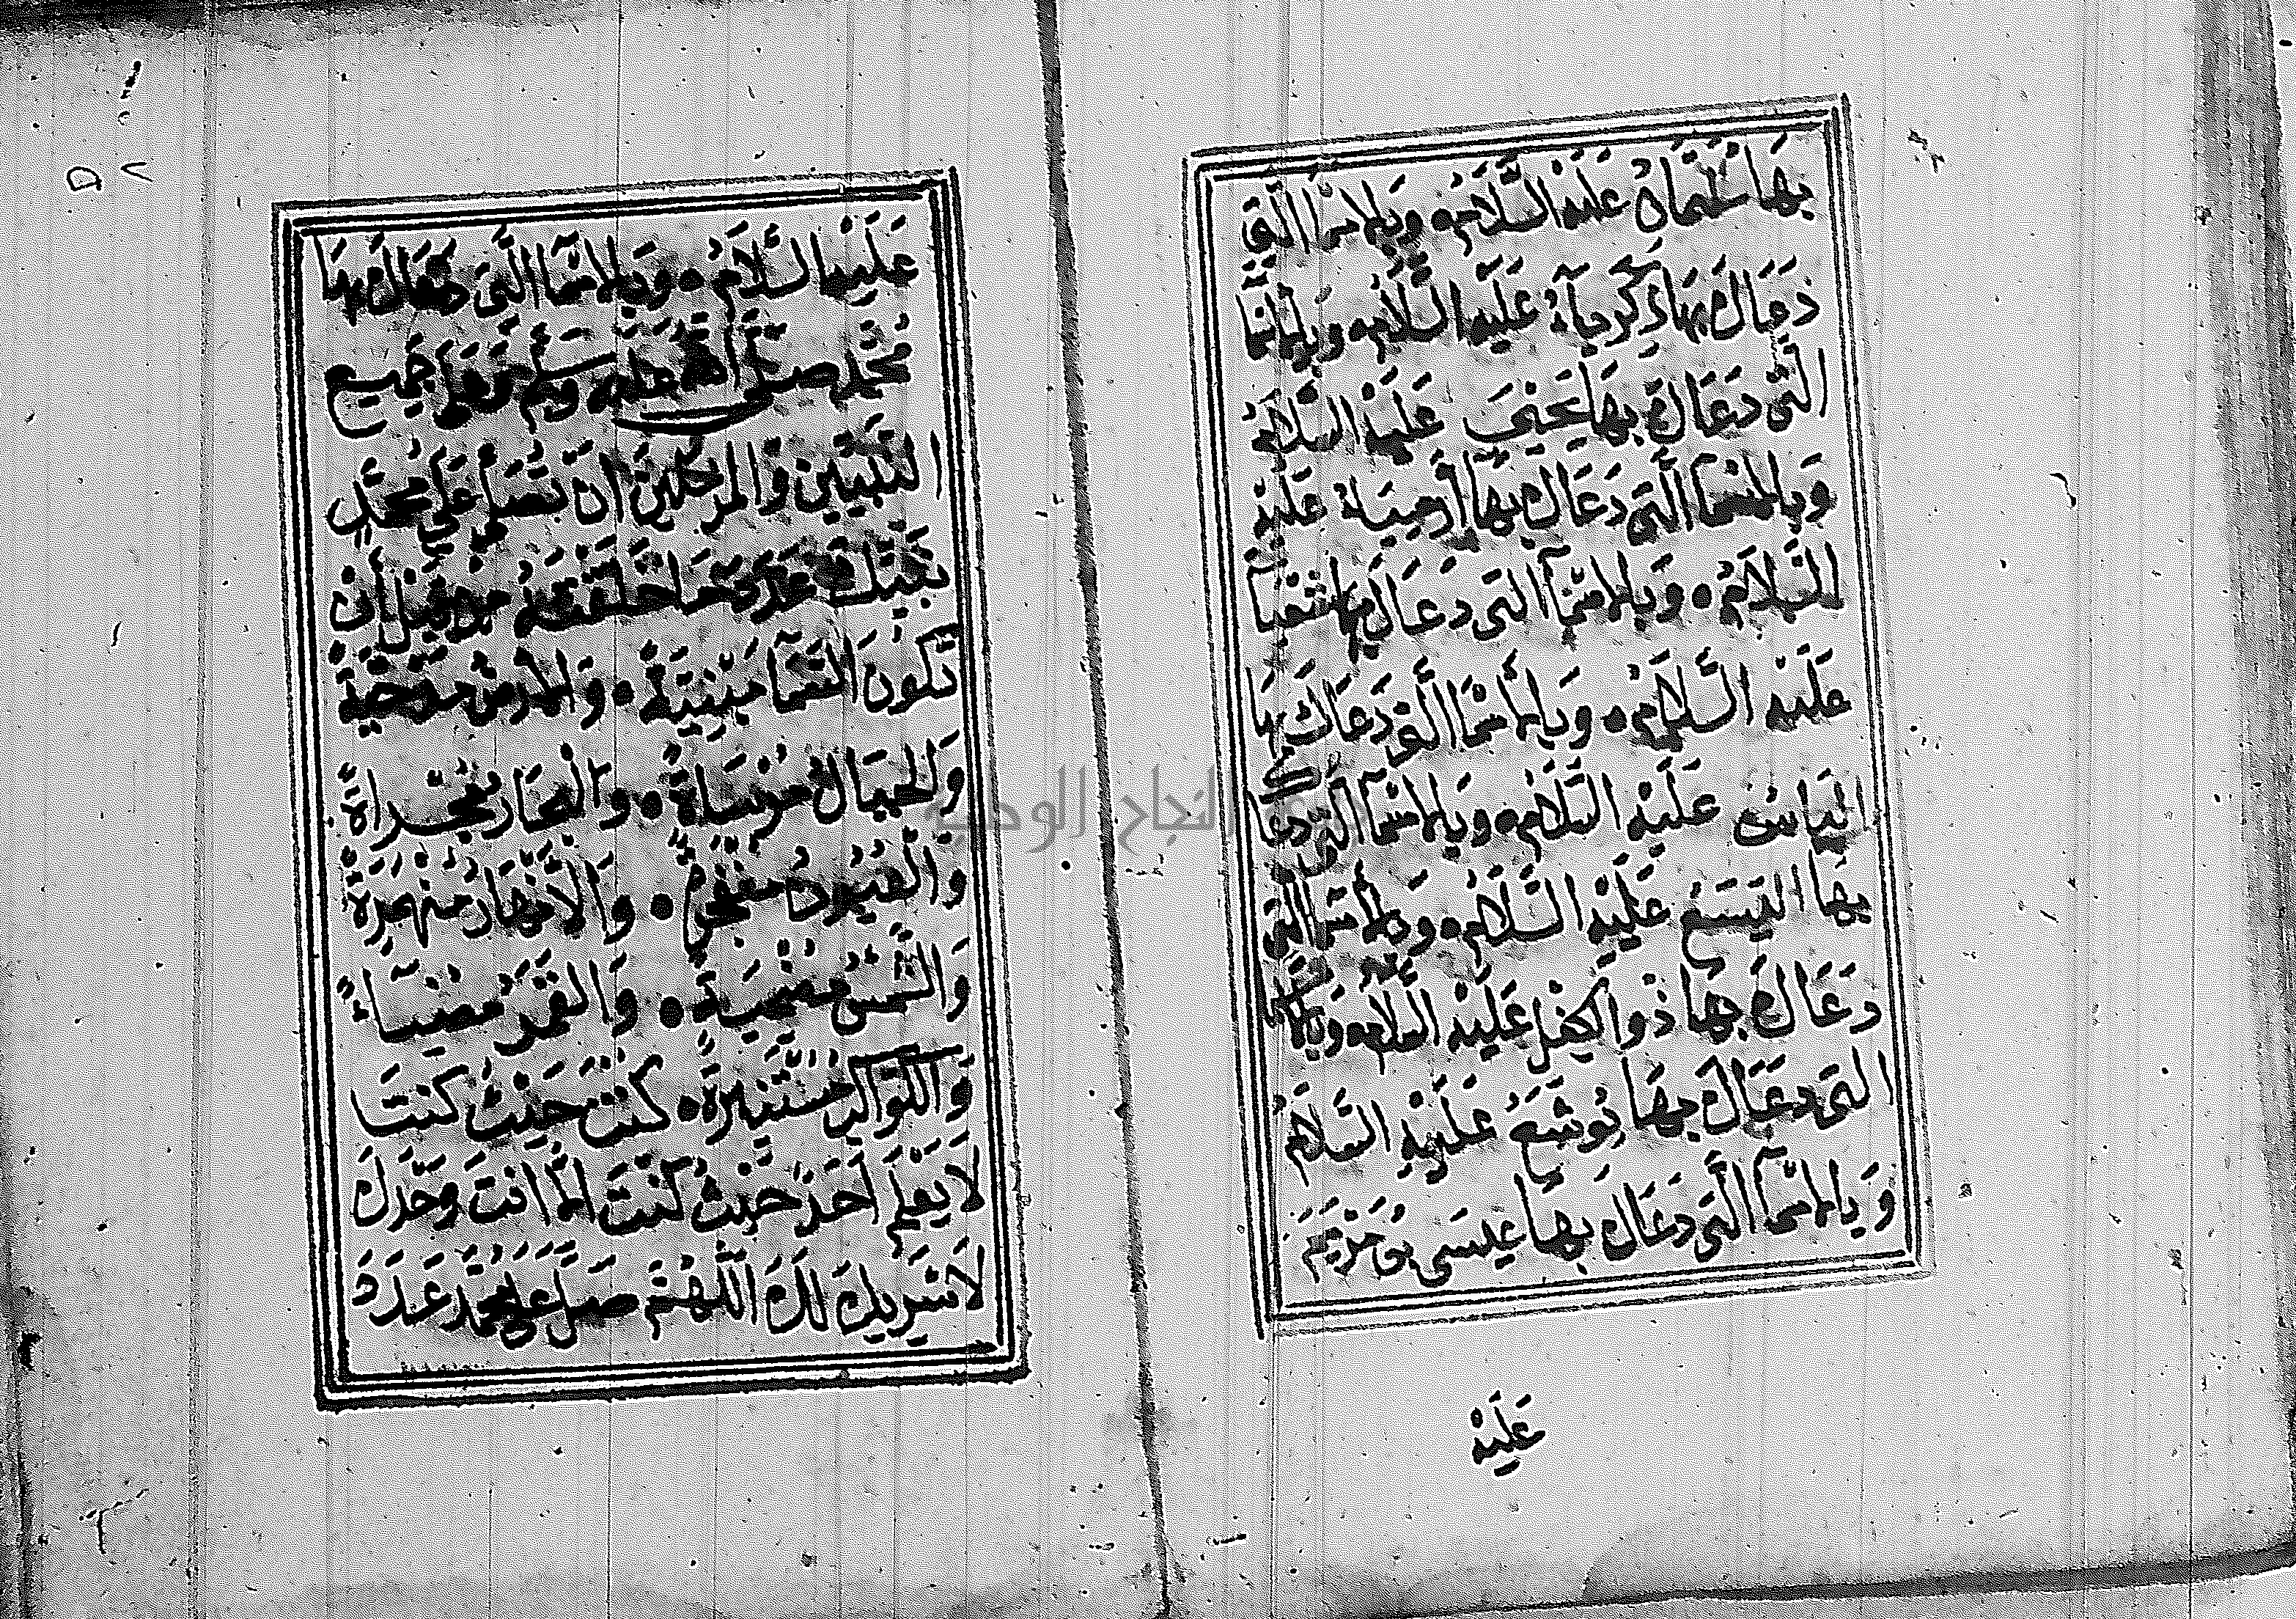 بِهَا سُلَيْمَانُ عَلَيْهِ السَّلَامُ وَبِالْاَسْمَا الَّتِي
دَعَاكَ بِهَا زَكَرِيَاءُ عَلَيْهِ السَّلَامُ وَبِالْاَسْمَا
الَّتِى دَعَاكَ بِهَا يَحْيَى عَلَيْهِ السَّلَامُ
وَبِالْاَسْمَا الَّتِى دَعَاكَ بِهَا أَرْمِيَاءُ عَلَيْهِ
السَّلَامُ وَبِالْاَسْمَآ الَّتِى دَعَاكَ بِهَا شَعْيَا
عَلَيْهِ السَّلَامُ وَبِالْأَسْمَا الَّتِى دَعَاكَ بِهَا
اِلْيَاسُ عَلَيْهِ السَّلَامُ وَبِالْاَسْمَآ الَّتِى دَعَاكَ
بِهَا الْيَسَعُ عَلَيْهِ السَّلَامُ وَبِالْأَسْمَا الَّتِى
دَعَاكَ بِهَا ذُوا الْكِفْلِ عَلَيْهِ السَّلَامُ وَبِالْاَسْمَا
الَّتِى دَعَاكَ بِهَا يُوشَعُ عَلَيْهِ السَّلَامُ
وَبِالْاَسْمَآ الَّتِى دَعَاكَ بِهَا عِيسَى بْنُ مَرْيَمَ
عَلَيْهِ
عَلَيْهِمَا السَّلَامُ وَبِالْاَسْمَآ الَّتِى دَعَاكَ بِهَا
مُحَمَّد صَلَّى اللّٰهُ عَلَيْهِ وَسَلَّمَ وَعَلَى جَمِيعِ
النَّبِيِّينَ وَالْمُرْسَلِينَ اَنْ تُصَلِّىَ عَلَى مُحَمَّدٍ
نَبِيِّكَ عَدَدَ مَا خَلَقْتَهُ مِنْ قَبْلِ أَنْ
تَكُونَ السَّمَآ مَبْنِيَّةً وَالْاَرْضُ مَدْحِيَّةً
وَالْجِبَالُ مُرْسَاةً وَالْبِحَارُ مُجْرَاةً
وَالْعُيُونُ مُنْفَجِرَةً وَالْاَنْهَارُ مُنْهَمِرَةً
وَالشَّمْسُ مُضْحِيَةً وَالْقَمَرُ مُضِيئًا
وَالْكَوَاكِبُ مُسْتَنِيرَةً كُنْتَ حَيْثُ كُنْتَ
لَا يَعْلَمُ اَحَدٌ حَيْثُ كُنْتَ اِلَّا اَنْتَ وَحْدَكَ
لَا شَرِيكَ لَكَ اَللّٰهُمَّ صَلِّ عَلَى مُحَمَّد عَدَدَ
النجاح الوطنية